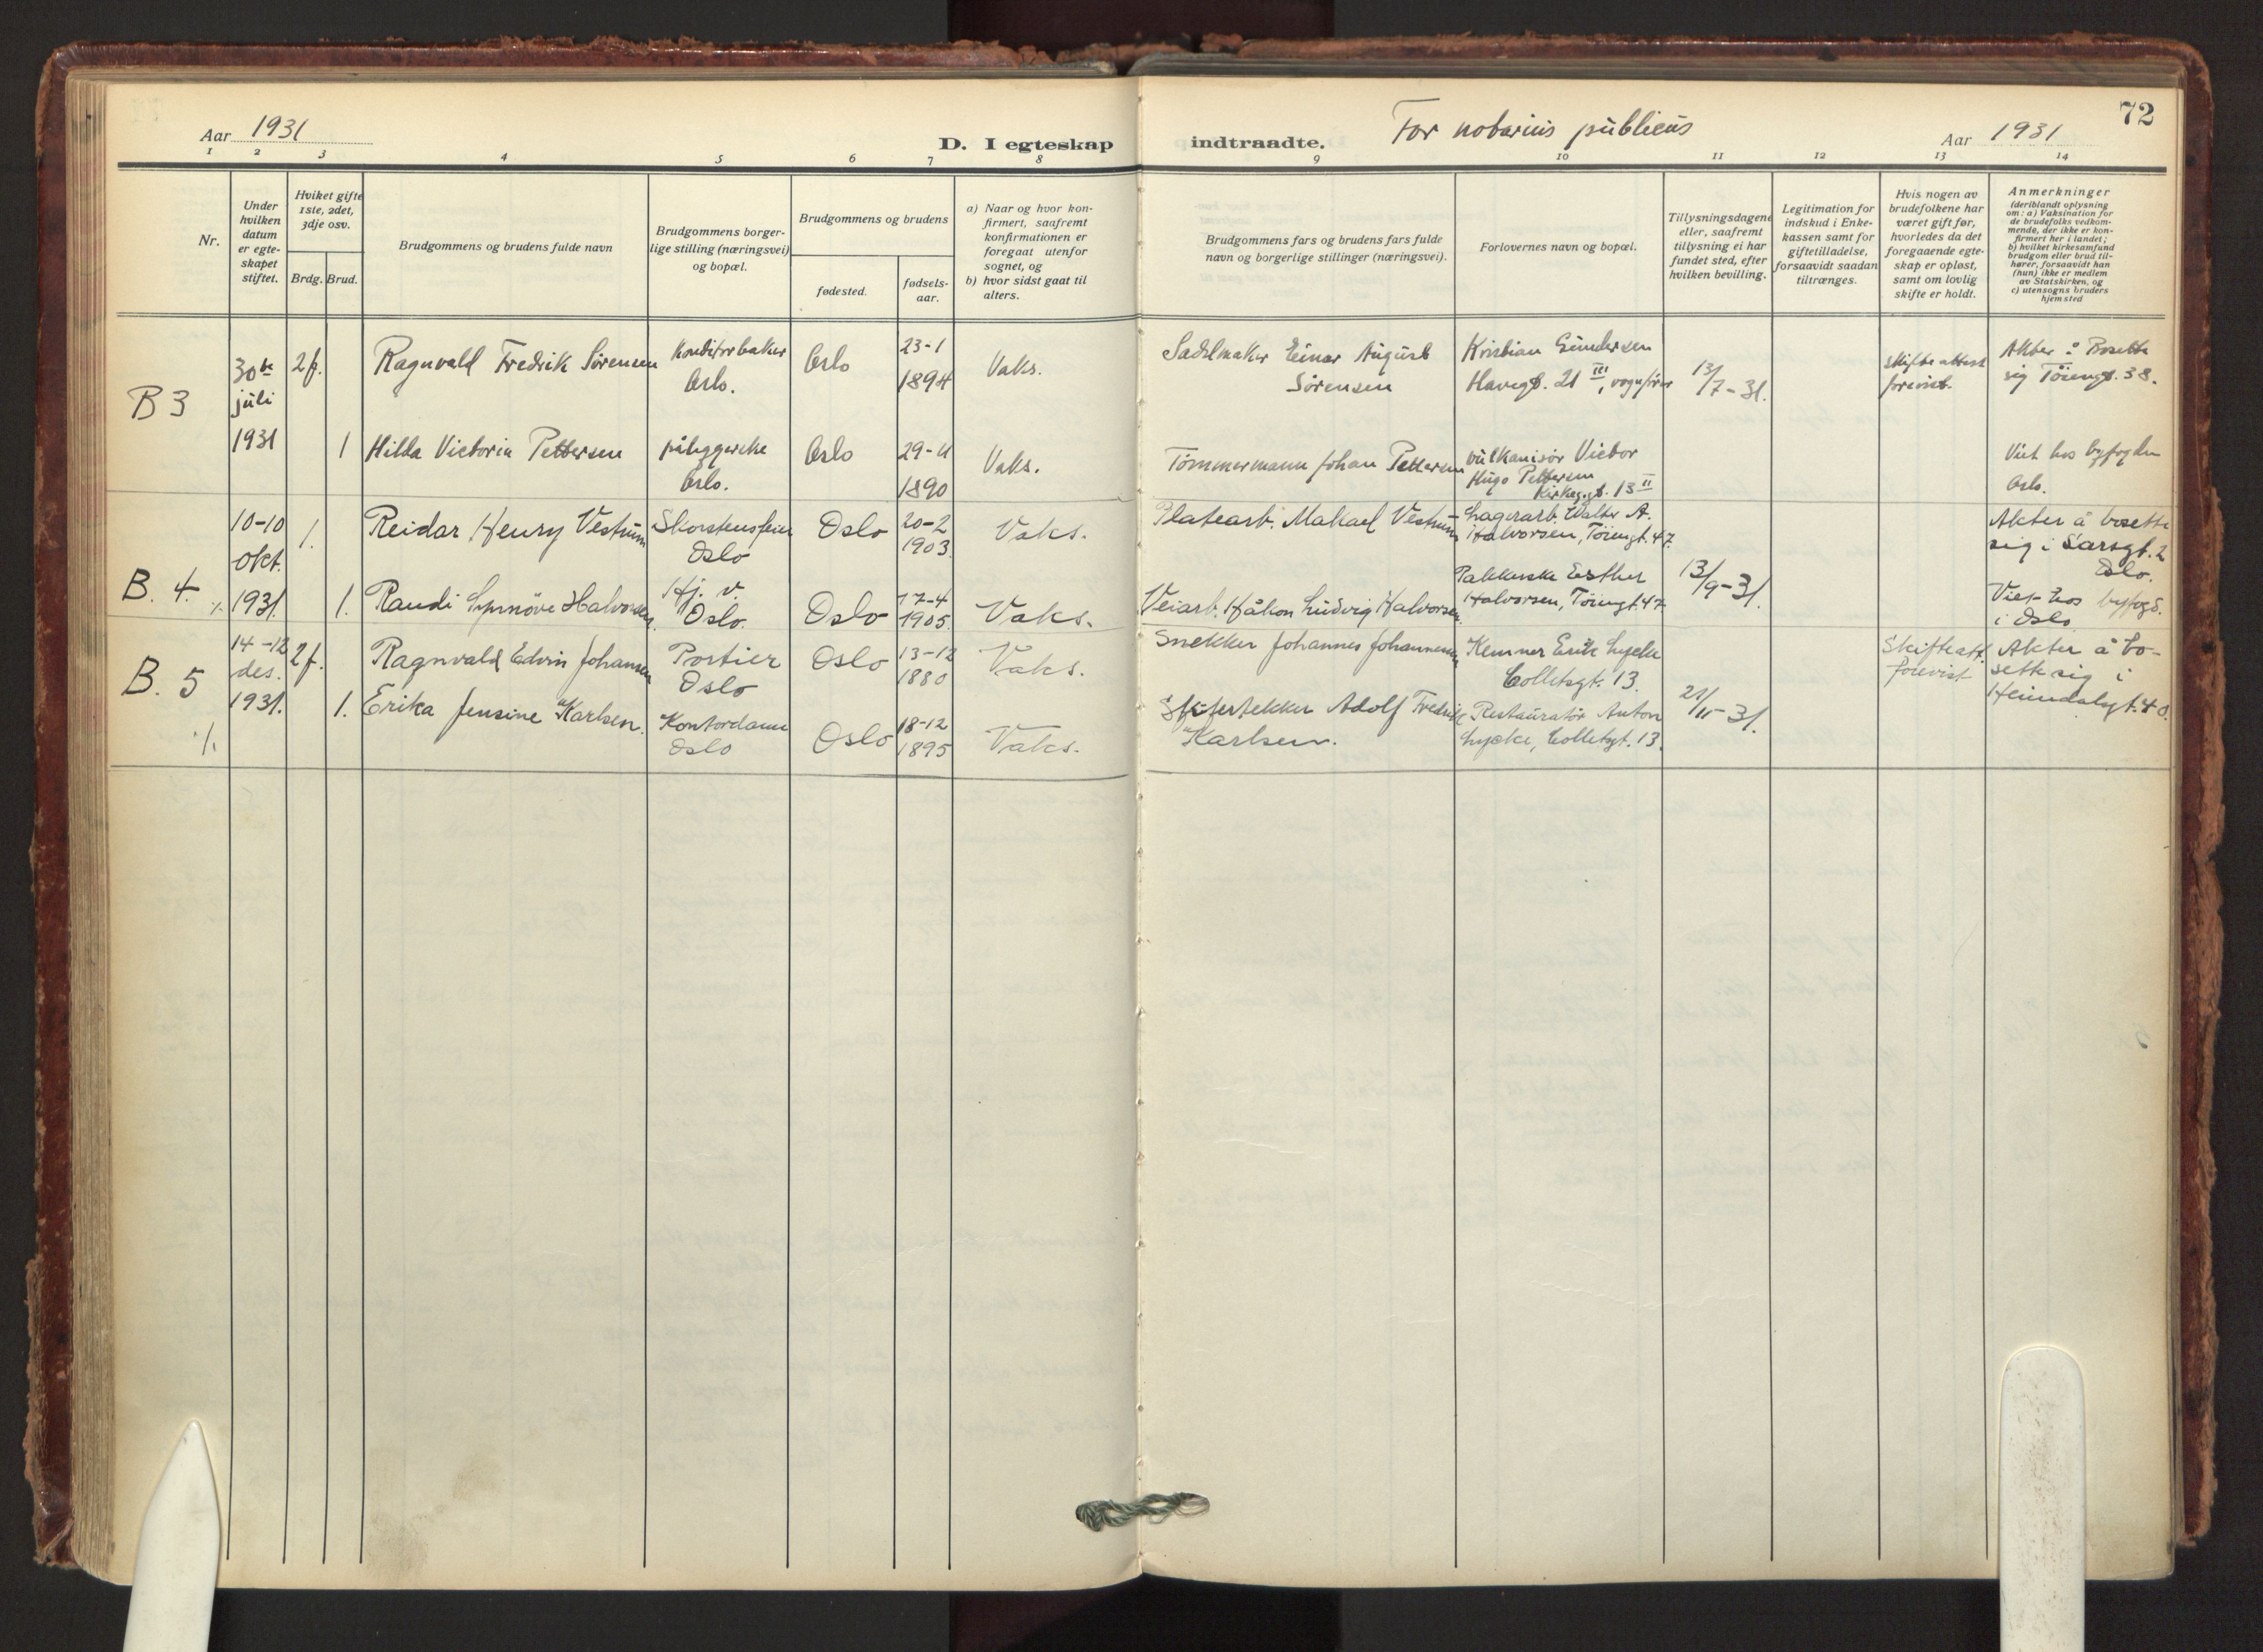 72
Aar 1931
D. I egteskap indtraadte.
For notarius publicus
Aar 1931
1 2 3 4 5 6 7 8 9 10 11 12 13 14
Nr.
Under
hvilken
datum
er egte-
skapet
stiftet.
Hviket gifte
1ste, 2det,
3dje osv.
Brdg. Brud.
Brudgommens og brudens fulde navn
Brudgommens borger-
lige stilling (næringsvei)
og bopæl.
Brudgommens og brudens
fødested.
fødsels-
aar.
a) Naar og hvor kon-
firmert, saafremt
konfirmationen er
foregaat utenfor
sognet, og
b) hvor sidst gaat til
alters.
Brudgommens fars og brudens fars fulde
navn og borgerlige stillinger (næringsvei).
Forlovernes navn og bopæl.
Tillysningsdagene
eller, saafremt
tillysning ei har
fundet sted, efter
hvilken bevilling.
Legitimation for
indskud i Enke-
kassen samt for
giftetilladelse,
forsaavidt saadan
tiltrænges.
Hvis nogen av
brudefolkene har
været gift før,
hvorledes da det
foregaaende egte-
skap er opløst,
samt om lovlig
skifte er holdt.
Anmerkninger
(deriblandt oplysning
om: a) Vaksination for
de brudefolks vedkom-
mende, der ikke er kon-
firmert her i landet;
b) hvilket kirkesamfund
brudgom eller brud til-
hører, forsaavidt han
(hun) ikke er medlem
av Statskirken, og
c) utensogns bruders
hjemsted
B 3
30te
juli
1931
2f.
Ragnvald Fredrik Sørensen
Konditorbaker
Oslo.
Oslo
23-1
1894
Vaks.
Sadelmaker Einar August
Sørensen
Kristian Gundersen
Havegt. 21 III, vognfører
13/7-31.
Skifteattest
forevist.
Akter å bosette
sig Tøiengt. 38.
1
Hilda Victoria Pettersen
pålæggerske
Oslo.
Oslo
29-11
1890
Vaks.
Tømmermann Johan Pettersen
vulkanisør Victor
Hugo Pettersen
Kirkegt. 13 II
Viet hos byfogden
Oslo.
B. 4.
10-10
okt.
1931.
1.
Reidar Henry Vestrum
Skorstensfeier
Oslo
Oslo
20-2
1903.
Vaks.
Platearb. Makael Vestrum
Lagerarb. Walter A.
Halvorsen, Tøiengt. 47.
13/9-31.
Akter å bosette
sig i Sarsgt. 2
Oslo.
1.
Randi Synnøve Halvorsen.
Hj. v.
Oslo.
Oslo
17-4
1905.
Vaks.
Veiarb. Håkon Ludvig Halvorsen.
Pakkerske Esther
Halvorsen, Tøiengt. 47
Viet hos byfogd.
i Oslo
B. 5
14-12
des.
1931.
2f.
Ragnvald Edvin Johansen
Portier
Oslo
Oslo
13-12
1880
Vaks.
Snekker Johannes Johannesen
Kemner Erik Lycke
Colletsgt. 13.
21/11-31.
Skifteatt.
forevist
Akter å bo-
sette sig i
Heimdalsgt. 40.
1.
Erika Jensine Karlsen.
Kontordame
Oslo
Oslo
18-12
1895
Vaks.
Skifertekker Adolf Fredrik
Karlsen.
Restauratør Anton
Lycke, Colletsgt. 13.